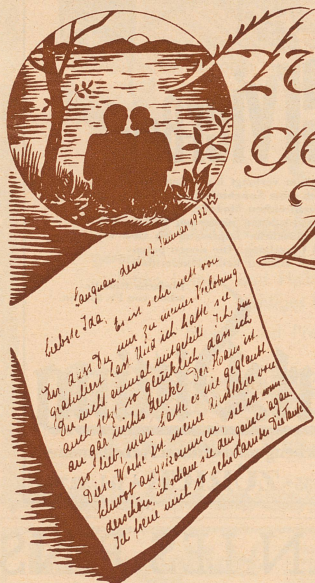 Zw
ge
Langnau, den 12. Januar 1932
Liebste Ida, Es ist sehr nett von
Dir, dass Du mir zu meiner Verlobung
gratuliert hast. Und ich hatte sie
Dir nicht einmal mitgeteilt. Ich bin
auch jetzt so glücklich, dass ich
an gar nichts denke. Der Hans ist
so lieb, man hätte es nie geglaubt.
Diese Woche ist meine Aussteuer von
angekommen, sie ist wun-
derschön, ich schaue sie den ganzen Tag an.
Ich freue mich so sehr darüber. Die Tante